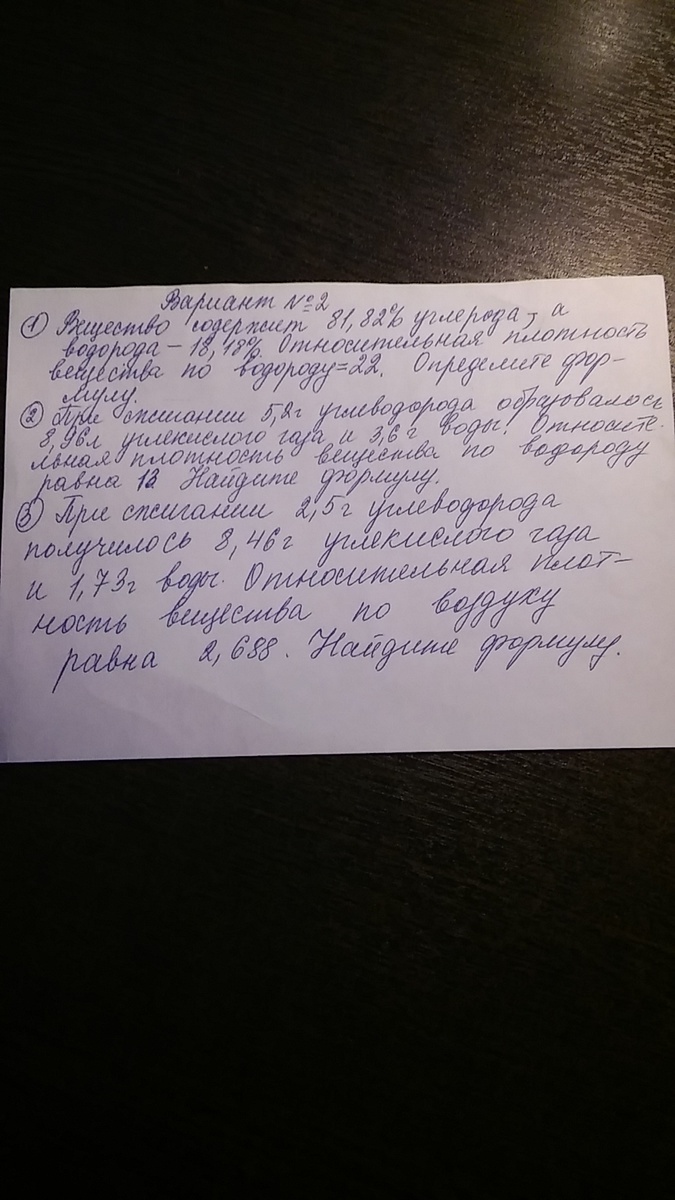 Вариант №2
① Вещество содержит 81,82% углерода, а
водорода – 18,18%. Относительная плотность
вещества по водороду=22. Определите фор-
мулу.
② При сжигании 5,2г углеводорода образовалось
8,96л углекислого газа и 3,6г воды. Относите-
льная плотность вещества по водороду
равна 13. Найдите формулу.
③ При сжигании 2,5г углеводорода
получилось 8,46г углекислого газа
и 1,73г воды. Относительная плот-
ность вещества по воздуху
равна 2,688. Найдите формулу.